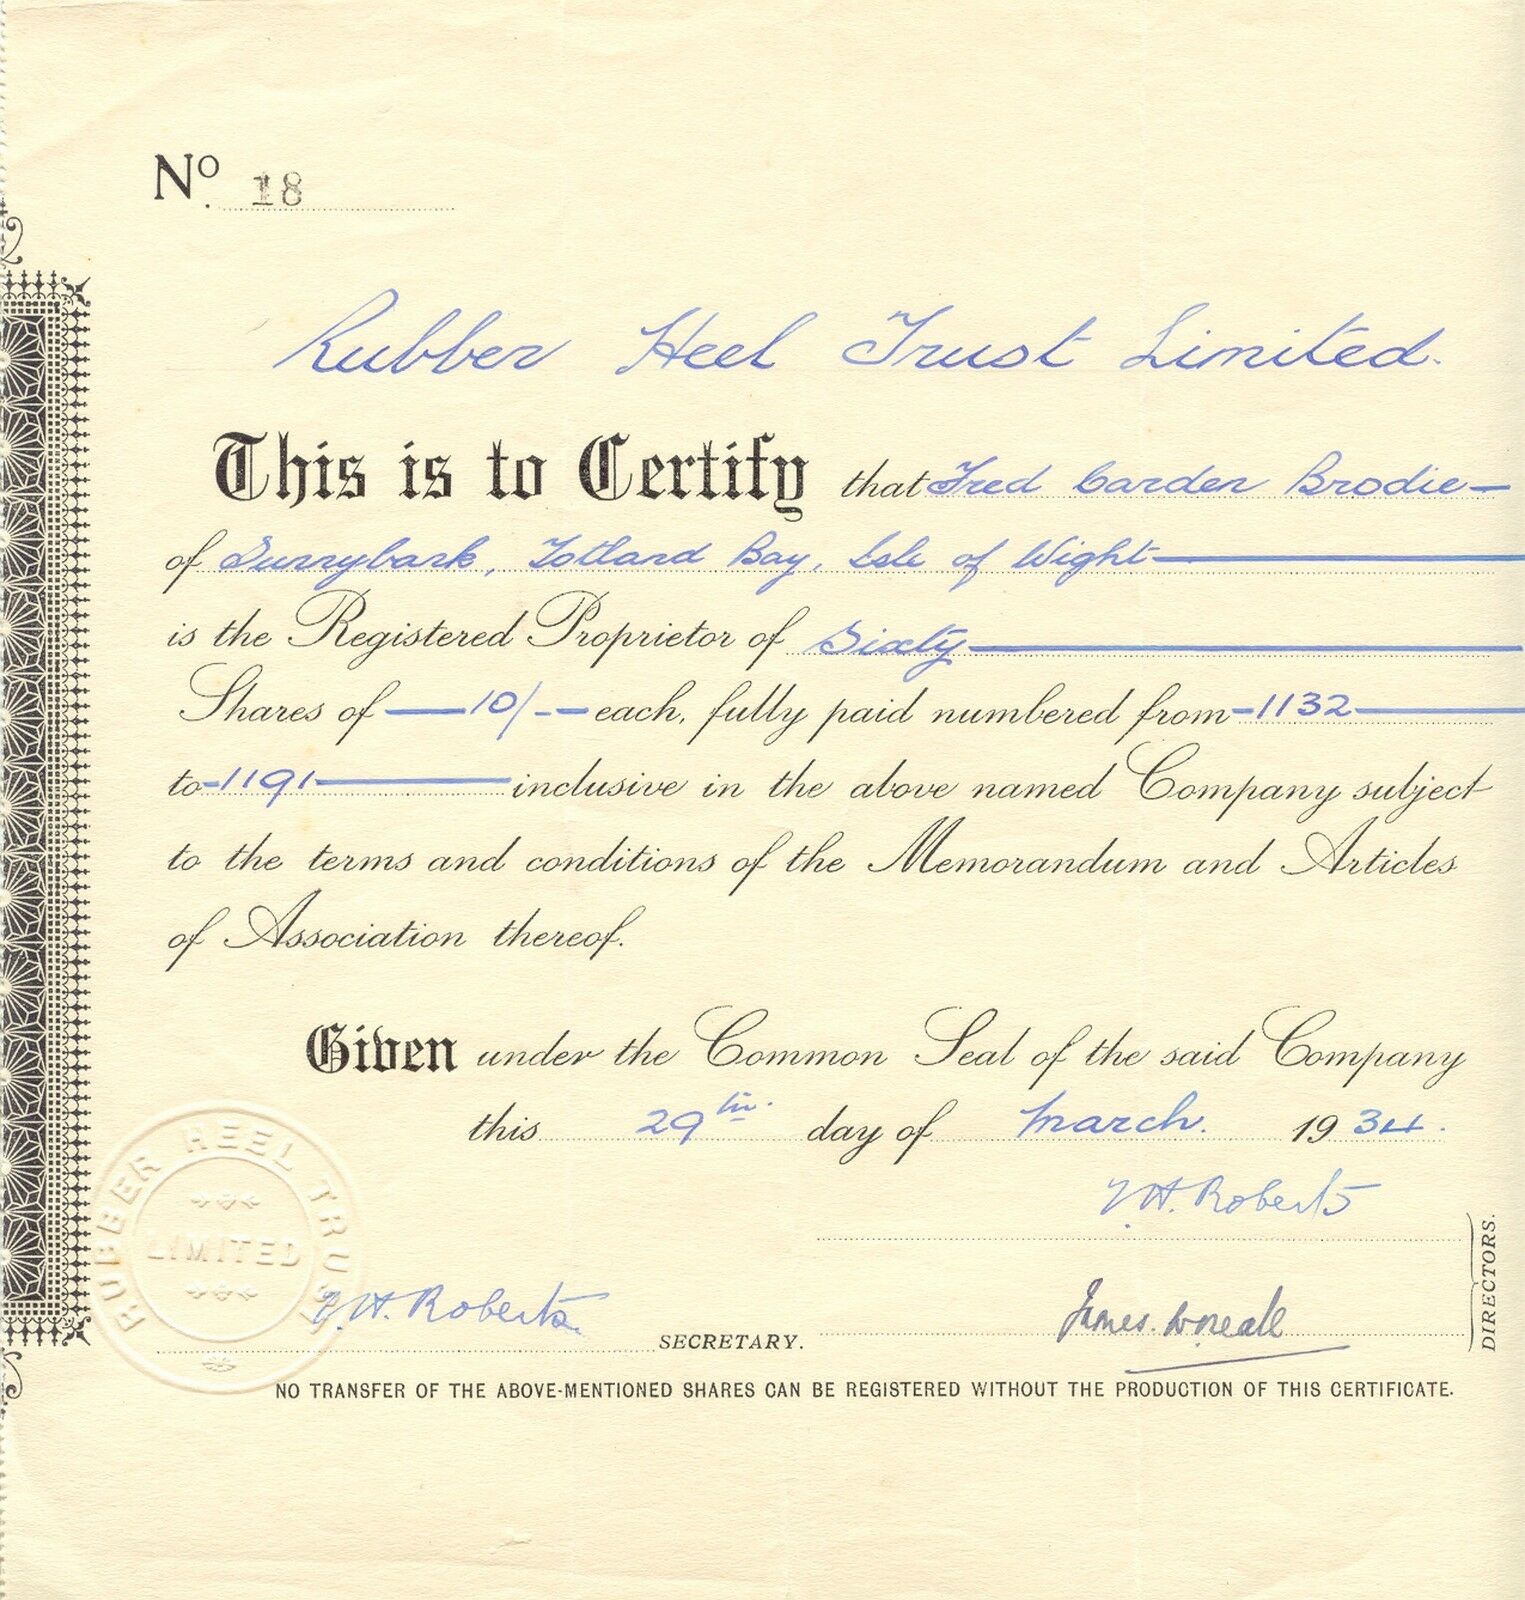 No. 18
Rubber Heel Trust Limited.
This is to Certify that Fred Carden Brodie
of Sunnybank, Totland Bay, Isle of Wight
is the Registered Proprietor of Sixty
Shares of 10/- each, fully paid numbered from 1132
to 1191 inclusive in the above named Company subject
to the terms and conditions of the Memorandum and Articles
of Association thereof.
Given under the Common Seal of the said Company
this 29th. day of March. 1934.
RUBBER HEEL TRUST
LIMITED
H. Roberts
H. Roberts. SECRETARY.
James
DIRECTORS.
NO TRANSFER OF THE ABOVE-MENTIONED SHARES CAN BE REGISTERED WITHOUT THE PRODUCTION OF THIS CERTIFICATE.